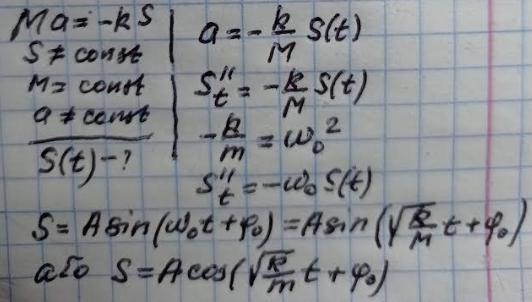 Ma = -kS
S ≠ const
M = const
a ≠ const
S(t) - ?
a = - k/M S(t)
S''t = - k/M S(t)
- k/m = ω₀²
S''t = -ω₀ S(t)
S = A sin(ω₀t + φ₀) = A sin(√k/M t + φ₀)
або S = A cos(√k/m t + φ₀)